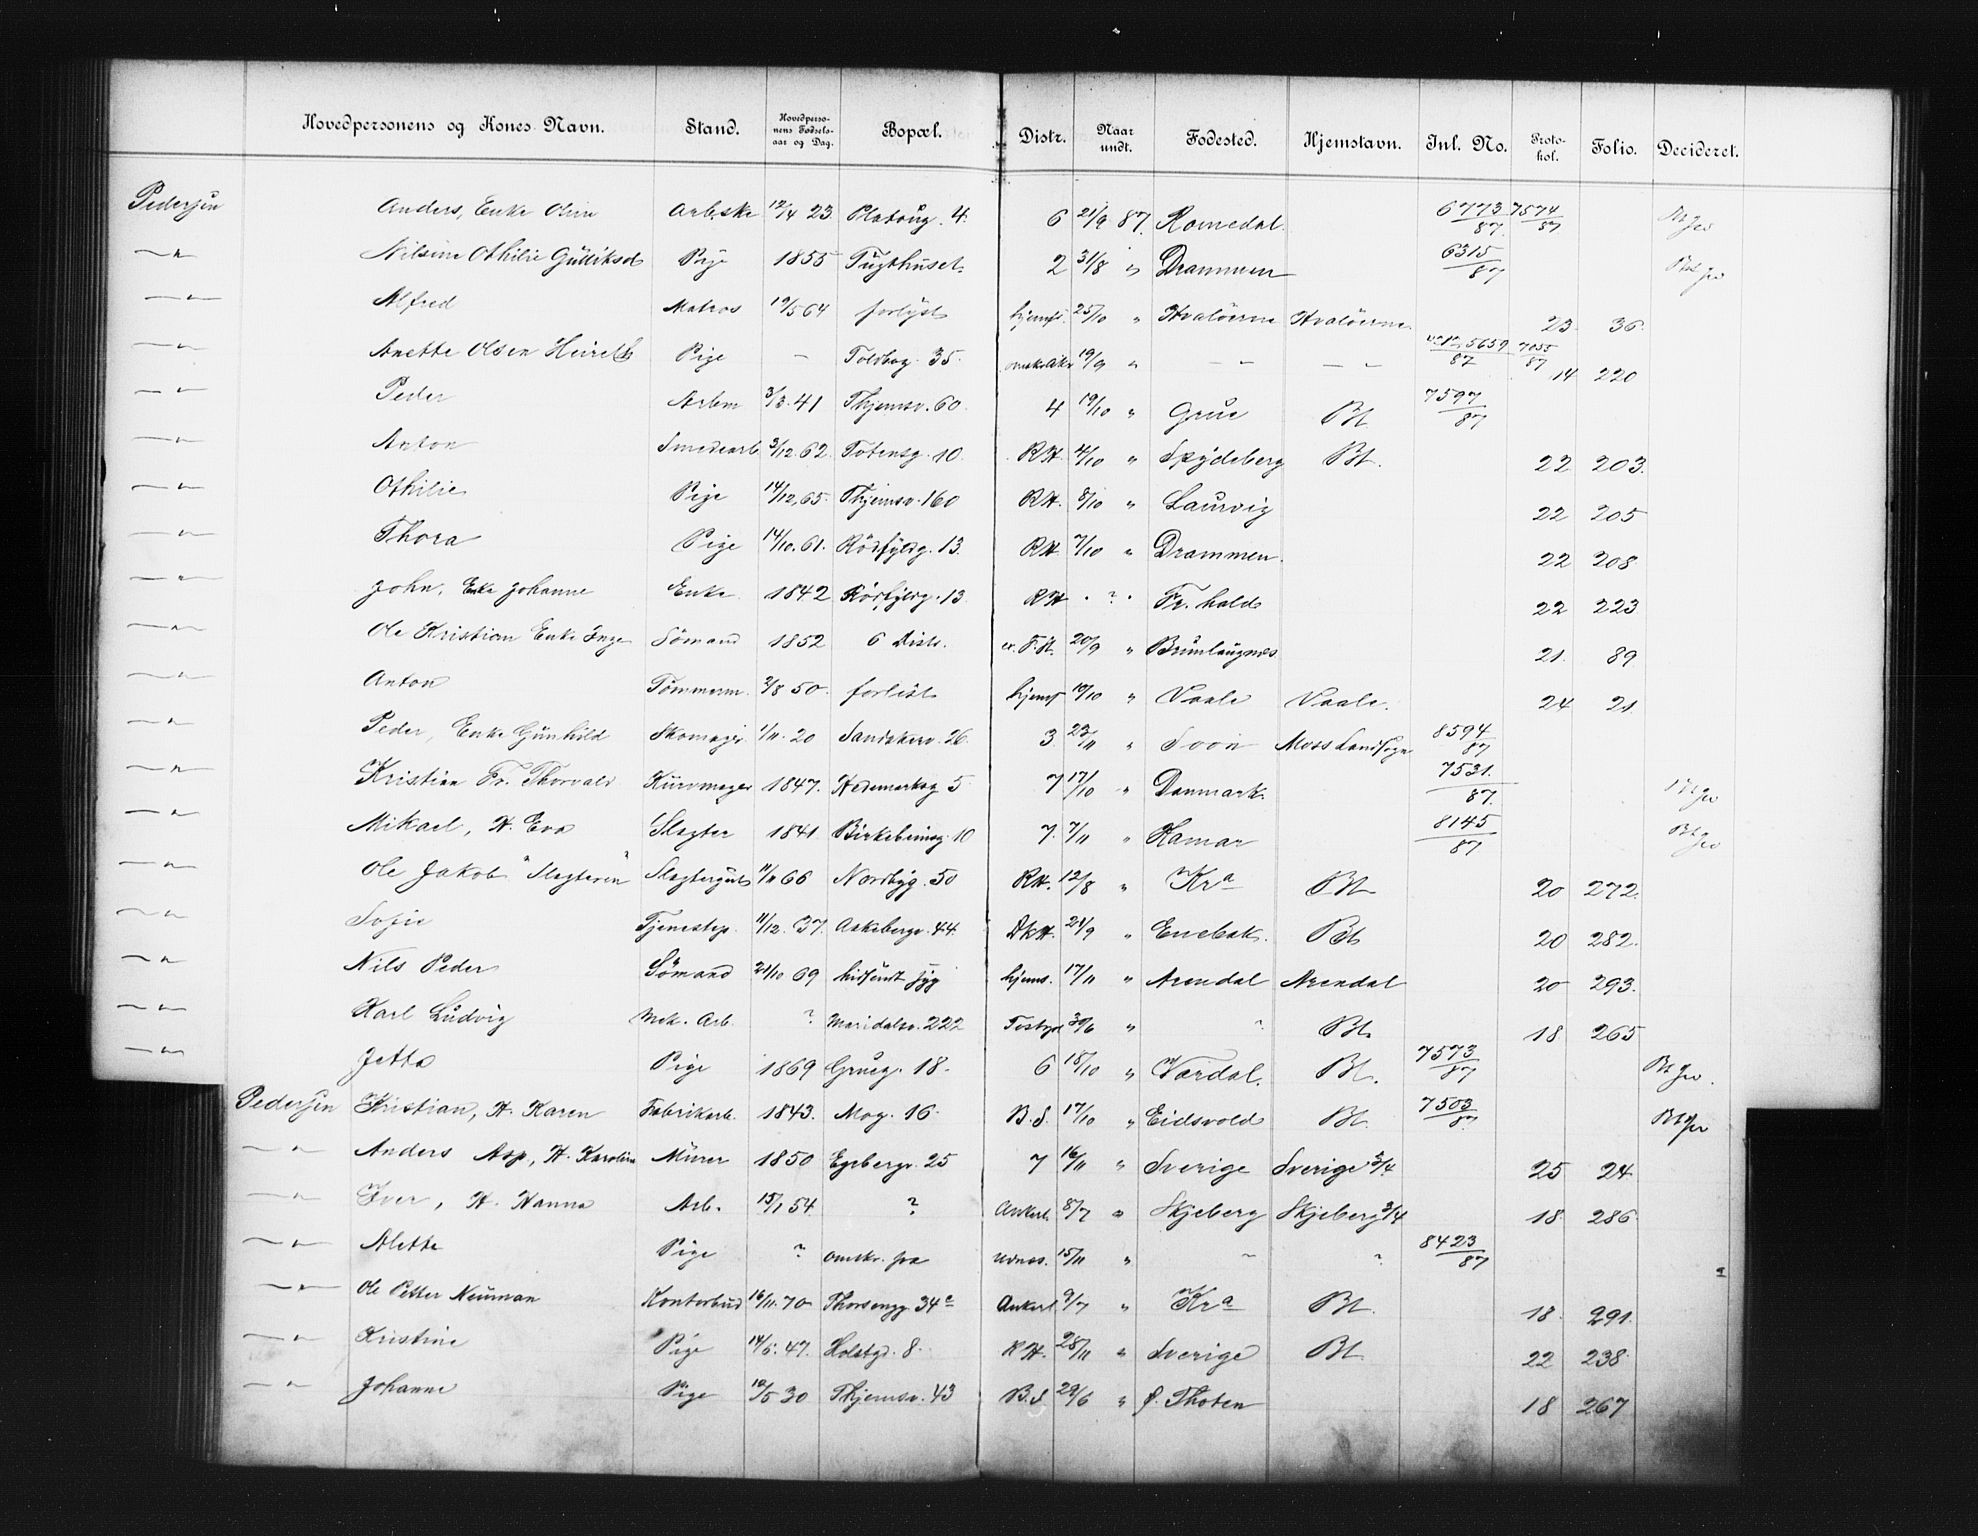 Hovedpersonens og Kones Navn. Stand. Hovedperso-nens Fødsels-aar og Dag. Bopæl. Distr. Naar undt. Fødested. Hjemstavn. Inl. No. Proto-kol. Folio. Decideret.
Pedersen Anders, Enke Oline Arb.ske 12/4 23 Platoug. 4. 6 21/9 87. Romedal. 6773/87 7574/87
—"— Nilsine Othilie Gulliksd Pige 1855 Tugthuset 2 31/8 " Drammen 6315/87
—"— Alfred Matros 19/5 64 forlyst hjemst. 25/10 " Hvaløerne Hvaløerne 23 36
—"— Anette Olsen Pige — Toldbog. 35. 19/9 " —"— —"— 5659/87 7055/87 14 220
—"— Peder Arbm 41 Thjemsv. 60. 4 19/10 " Grue Bt. 7597/87
—"— Anton Smedearb 3/12 62. Totensg. 10. RH. 4/10 " Spydeberg Bt. 22 203.
—"— Othilie Pige 14/12 65. Thjemsv. 160 RH. 8/10 " Laurvig 22 205
—"— Thora Pige 14/10 61. Rødfyldg. 13. RH. 7/10 " Drammen. 22 208
—"— John, Enke Johanne Enke 1842 13. RH. ? Fr.hald 22 223
—"— Ole Kristian Enke Inge Sømand 1852 6 Distr. 20/9 " Brunlaugnes 21. 89
—"— Anton Tømmerm. 2/8 50. forlist hjemst 19/10 " Vaale Vaale. 24 21
—"— Peder, Enke Gunhild Skomager 1/11 20 Sandakerv. 26. 3 23/11 " Soon Moss Landsogn 8594/87
—"— Kristian Fr. Thorvald Kurvmager 1847. Hedemarksg 5 7 17/10 " Danmark. 7531./87.
—"— Mikael, H. Eva Slagter 1841 Birkebeinerg 10 7. 7/11 " Hamar 8145/87
—"— Ole Jakob "Slagteren" Slagtergut 11/11 66 Nordbyg. 50 RH. 12/8 " Kra Bt. 20 272.
—"— Sofie Tjenestep. 11/12. 37. Aakebergv. 44. DKH. 21/9 " Enebak. Bt 20 282.
—"— Nils Peder Sømand 21/10 69 hidsendt syg hjems. 17/11 " Arendal Arendal 20 293.
—"— Karl Ludvig Mek. Arb. ? Maridalsv. 222 30/6 " ? Bt. 18 265
—"— Jetta Pige 1869 Grueg. 18. 6 18/10 " Vardal. Bt. 7573/87
Pedersen Kristian, H. Karen Fabrikarb. 1843. Mog. 16. B.S. 17/10 " Eidsvold Bt. 7503/87
—"— Anders Asp, H. Karoline Murer 1850 Egebergv. 25 7 16/11 " Sverige Sverige 3/4 25 24.
—"— Iver, H. Hanna Arb. 15/1 54. ? Ankerl. 8/7 " Skjeberg Skjeberg 3/4 18. 286
—"— Alette Pige ? omskr. fra 15/11 " — ? 8423/87
—"— Ole Petter Neuman Kontorbud 16/11. 70. Thorsengg. 34c Ankerl. 9/7 " Kra Bt. 18. 291.
—"— Kristine Pige 14/6. 47. Holstgd. 8. RH. 28/11 " Sverige Bt. 22 238.
—"— Johanne Pige 10/5 30 Thjemsv. 43 B.S 29/6 " Ø. Thoten 18 267